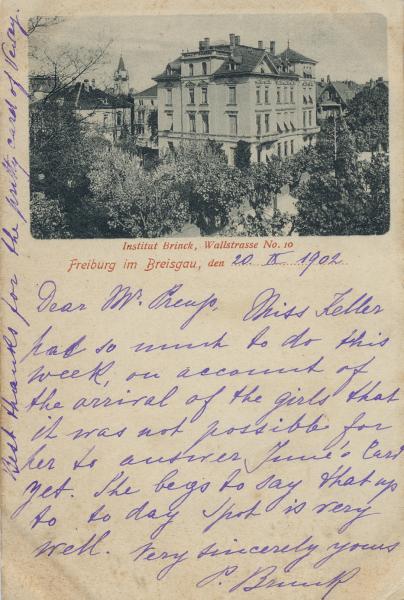 Institut Brinck, Wallstrasse No. 10
Freiburg im Breisgau, den 20. IX 1902
Dear Mr. Miss Keller
had so much to do this
week, on account of
the arrival of the girls that
it was not possible for
her to answer June's Card
yet. She begs to say that up
to to day Spot is very
well. Very sincerely yours
P. Brinck
Best thanks for the pretty card of Vevey.